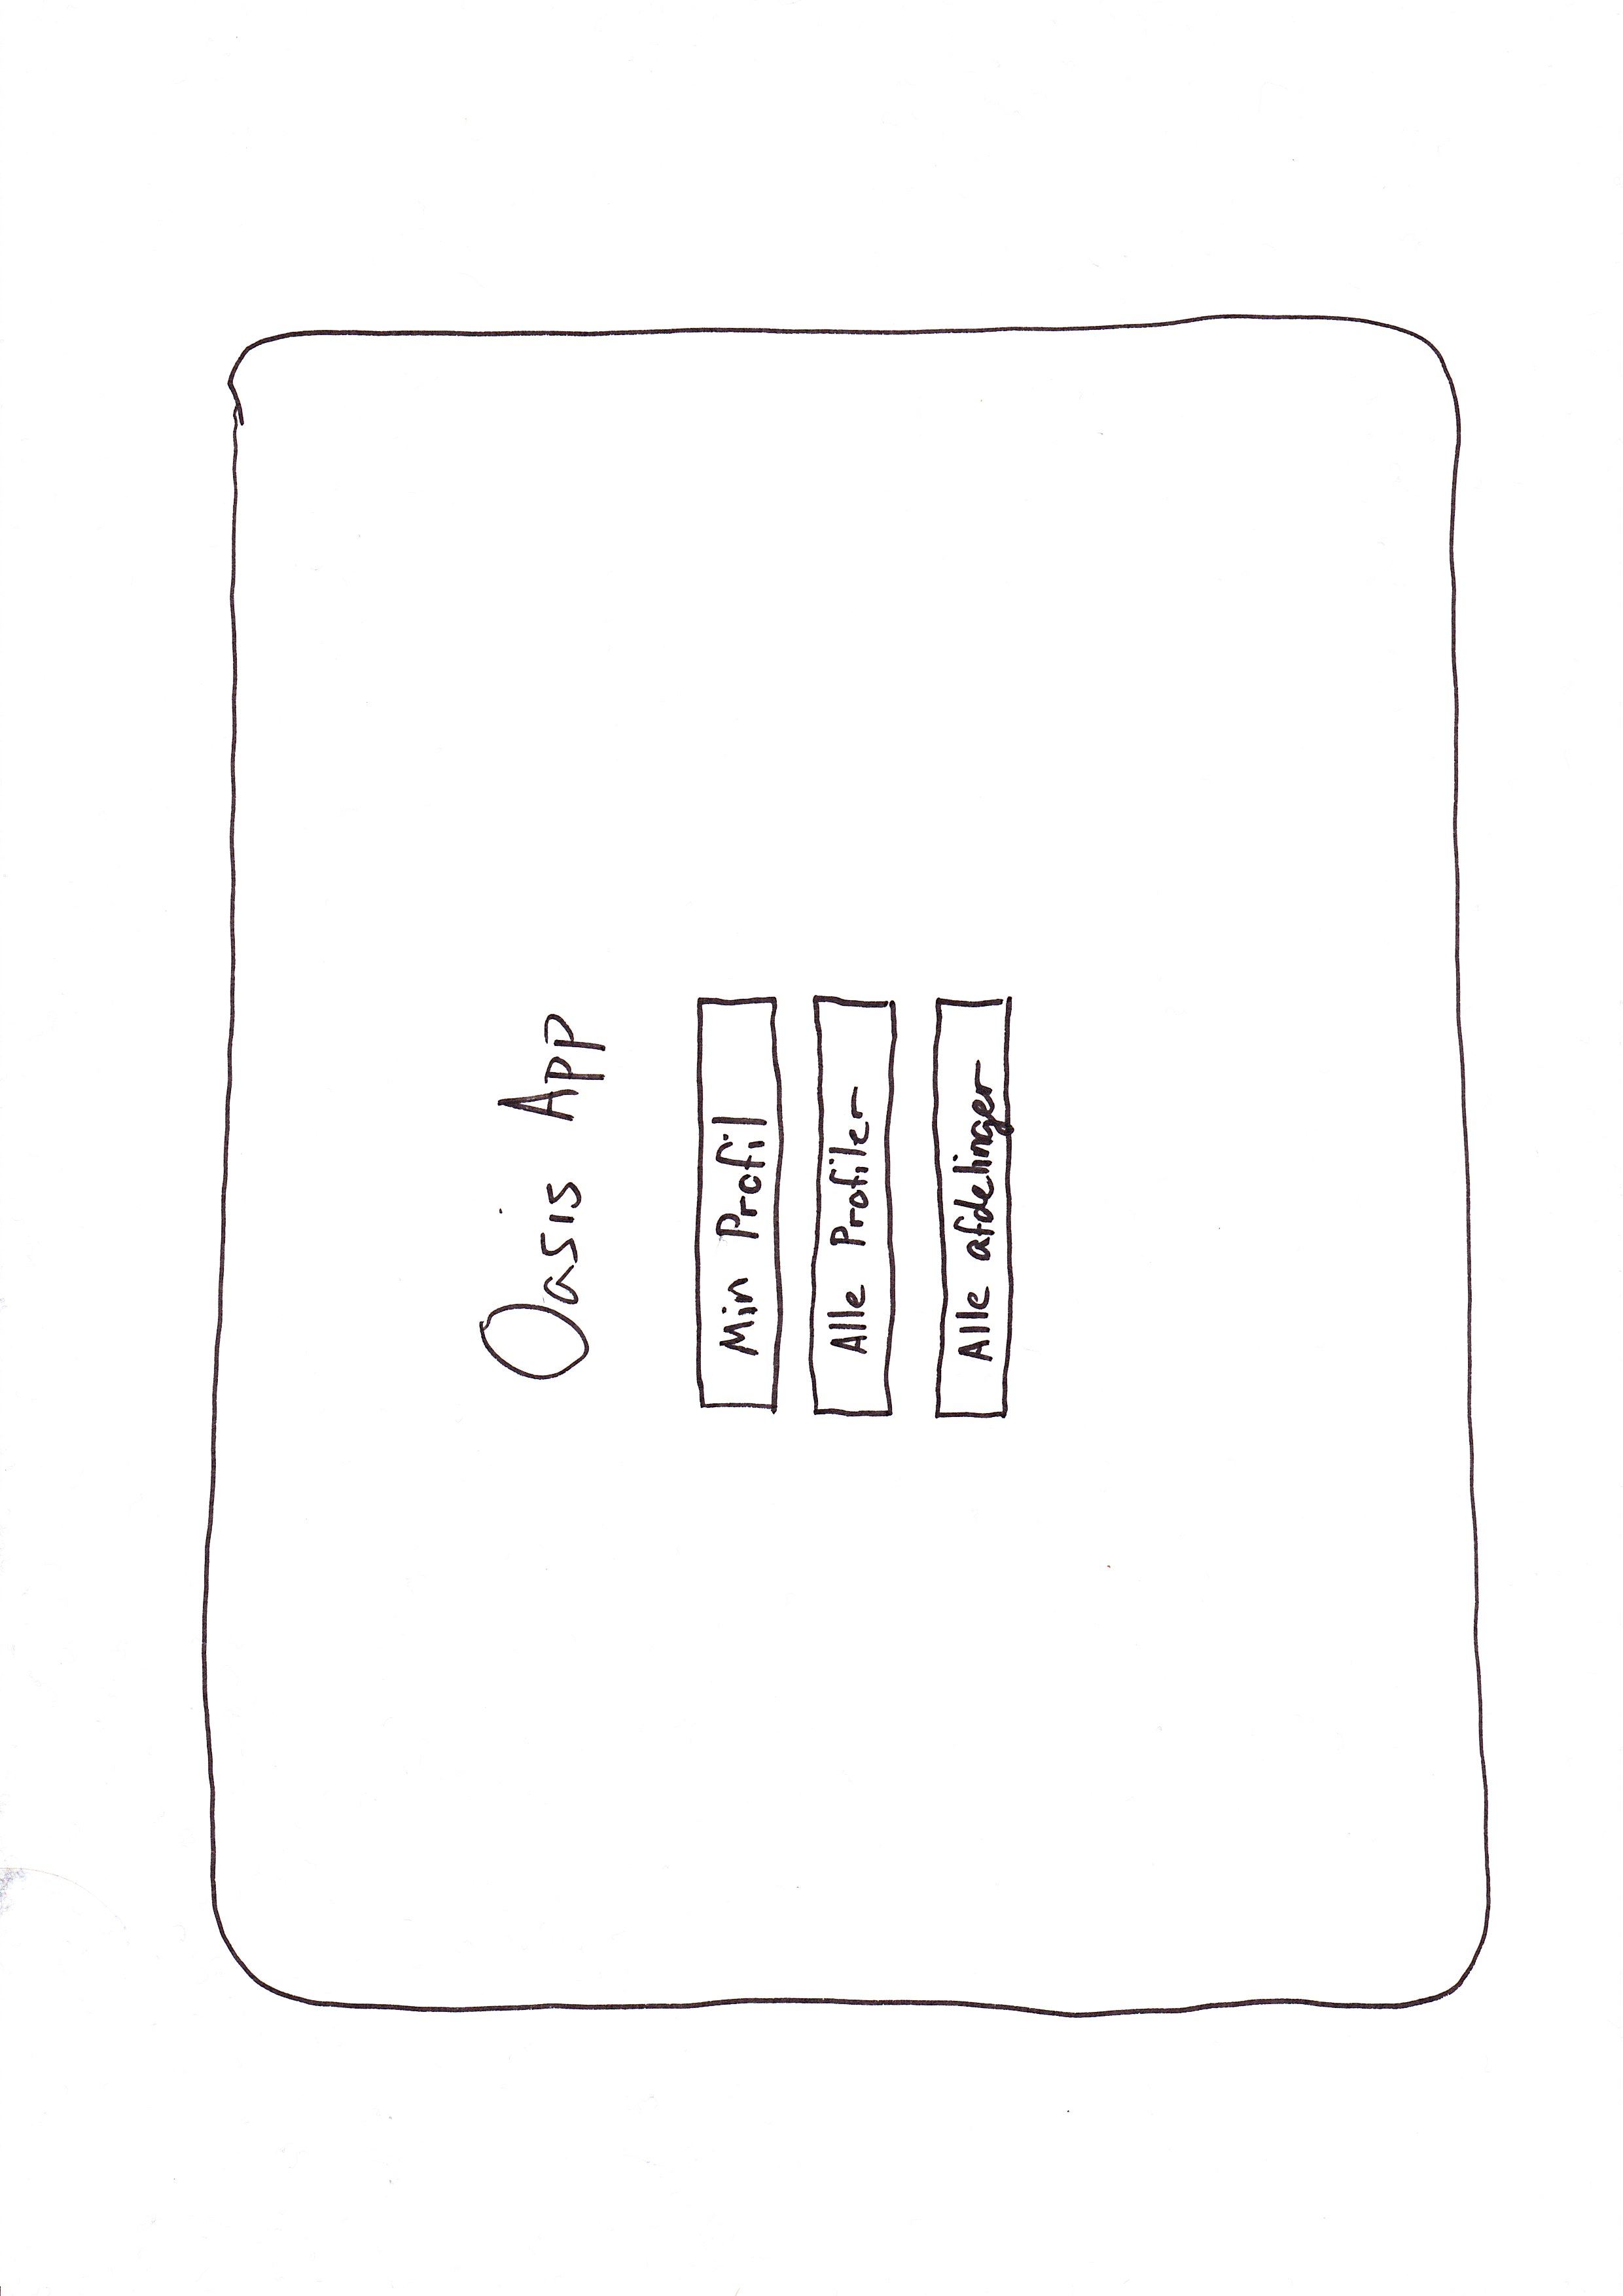 Oasis App
Min Profil
Alle Profiler
Alle afdelinger